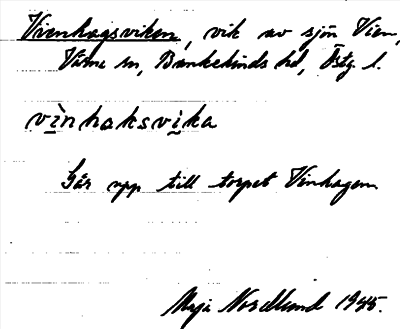 Vienhagsviken, vik av sjön Vien,
Värna sn, Bankekinds hd, Östg. l.
vìnhaksvika
Går upp till torpet Vinhagen
Maja Nordlund 1945.